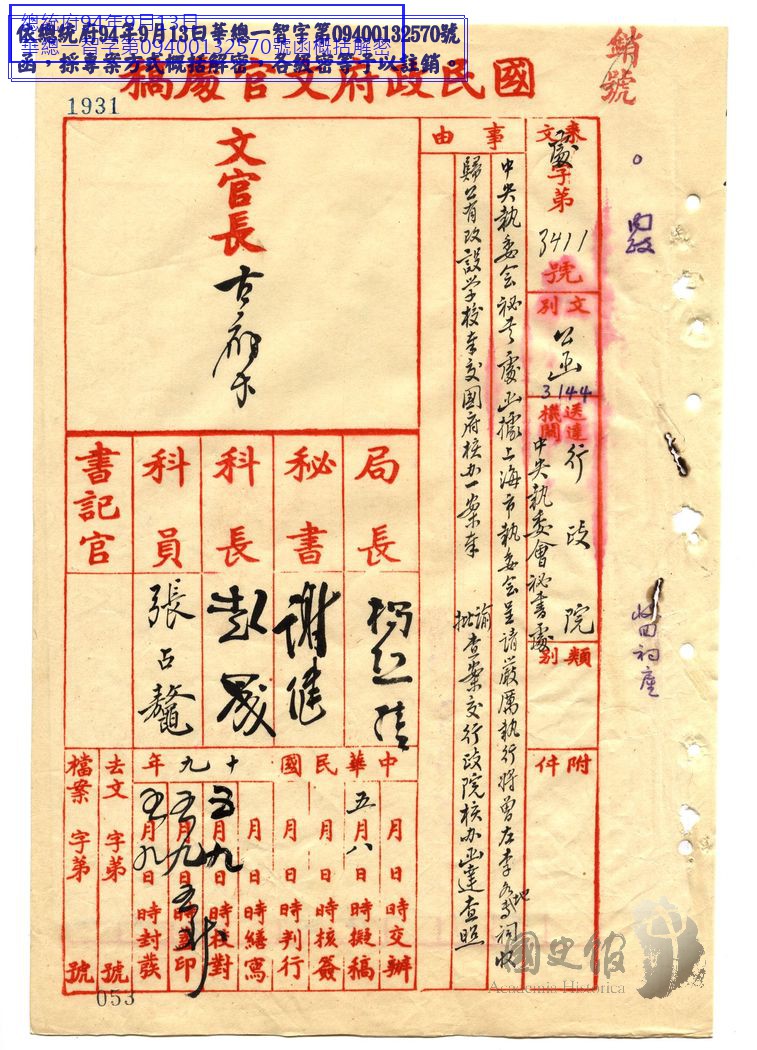 總統府94年9月13日
華總一智字第09400132570號函概括解密
依總統府94年9月13日華總一智字第09400132570號
函，採專案方式概括解密，各級密等予以註銷。
國民政府文官處稿
銷號
1931
來文處字第3411號
文別 公函
3144
送達機關 行政院
中央執委會秘書處
類別
附件
事由
中央執委会秘書處函據上海市執委会呈請嚴厲執行將曾左李各專祠地收
歸公有改設学校奉交國府核办一案奉
諭批查案交行政院核办函達查照
文官長
古應芬
局長
秘書 謝健
科長 彭晟
科員 張占鰲
書記官
中華民國十九年
月日時交辦
五月八日時擬稿
月日時核簽
月日時判行
月日時繕寫
五月九日時校對
五月九日時蓋印
五月九日時封發
去文 字第 號
檔案 字第 號
053
國史館
Academia Historica